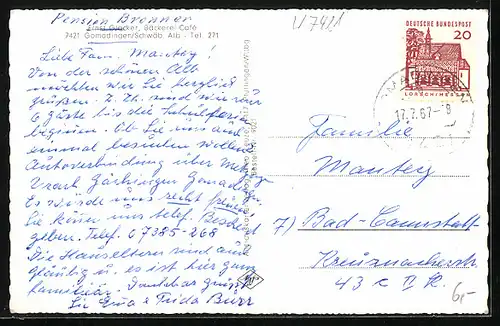 Pension Bronner
Ernst Glocker, Bäckerei Café
7421 Gomadingen/Schwäb. Alb - Tel. 271
Liebe Fam. Mantey!
Von der schönen Alb
möchten wir Sie herzlichst
grüßen. Z. Zt. sind nur
6 Gäste bis die Schulferien
beginnen. Ob Sie uns auch
einmal besuchen wollen
Autoverbindung über
Urach Gächingen Gomadingen
Es würde uns recht freuen
Sie können uns telef. Bescheid
geben. Telef. 07385-268
Die Hauseltern sind auch
gläubig u. es ist hier ganz
familiär. Dankbar grüßt
Sie Eva u Frida Burr
U 7421
DEUTSCHE BUNDESPOST
20
LORSCH/HESSEN
17.7.67-8
Familie
Mantey
7) Bad-Cannstatt
Kreuznacherstr.
43 c II R.
6,-